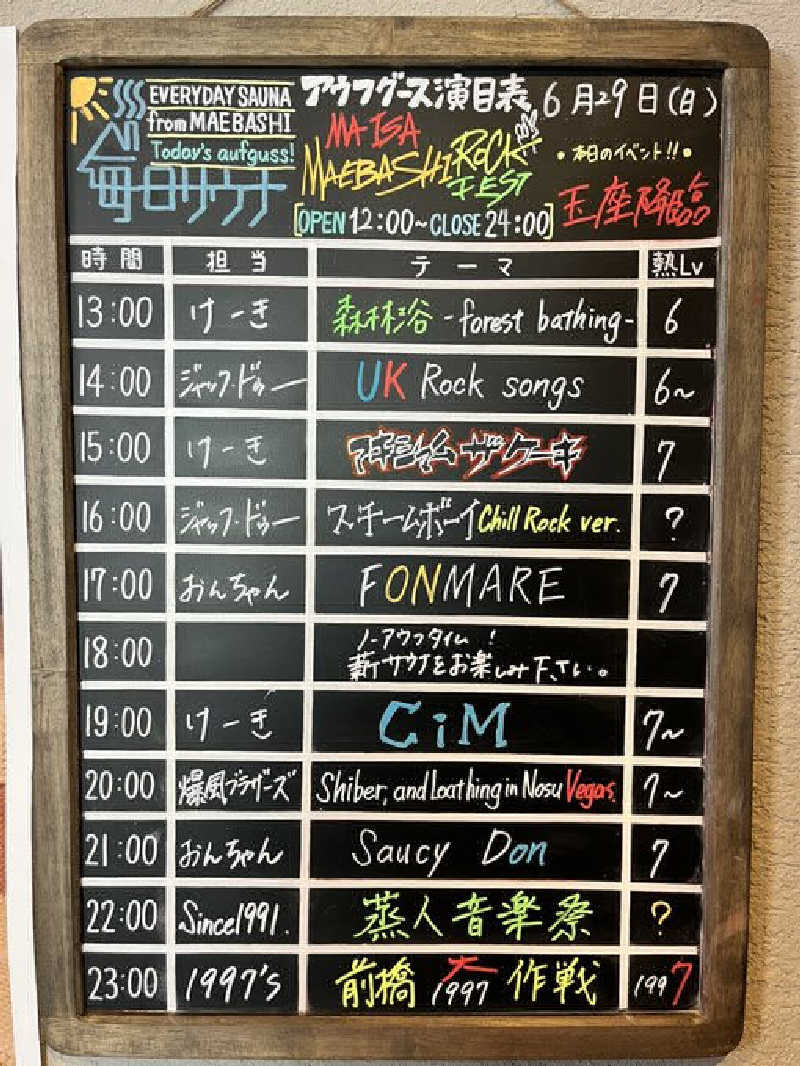 EVERYDAY SAUNA
from MAEBASHI
Today's aufguss!
毎日サウナ
アウフグース演目表 6月29日(日)
MAISA
MAEBASHI ROCK
FEST
•本日のイベント!!•
[OPEN 12:00~CLOSE 24:00]
玉座降臨
時間 担当 テーマ 熱Lv
13:00 けーき 森林浴 -forest bathing- 6
14:00 ジャック・ドゥー UK Rock songs 6~
15:00 けーき マキシマム ザ ケーキ 7
16:00 ジャック・ドゥー スチームボーイ Chill Rock ver. ?
17:00 おんちゃん FONMARE 7
18:00 ノーアウフタイム!
薪サウナをお楽しみ下さい。
19:00 けーき CiM 7~
20:00 爆風ブラザーズ Shiber, and Loathing in Nosu Vegas. 7~
21:00 おんちゃん Saucy Don 7
22:00 Since1991. 蒸人音楽祭 ?
23:00 1997's 前橋 大 1997 作戦 1997